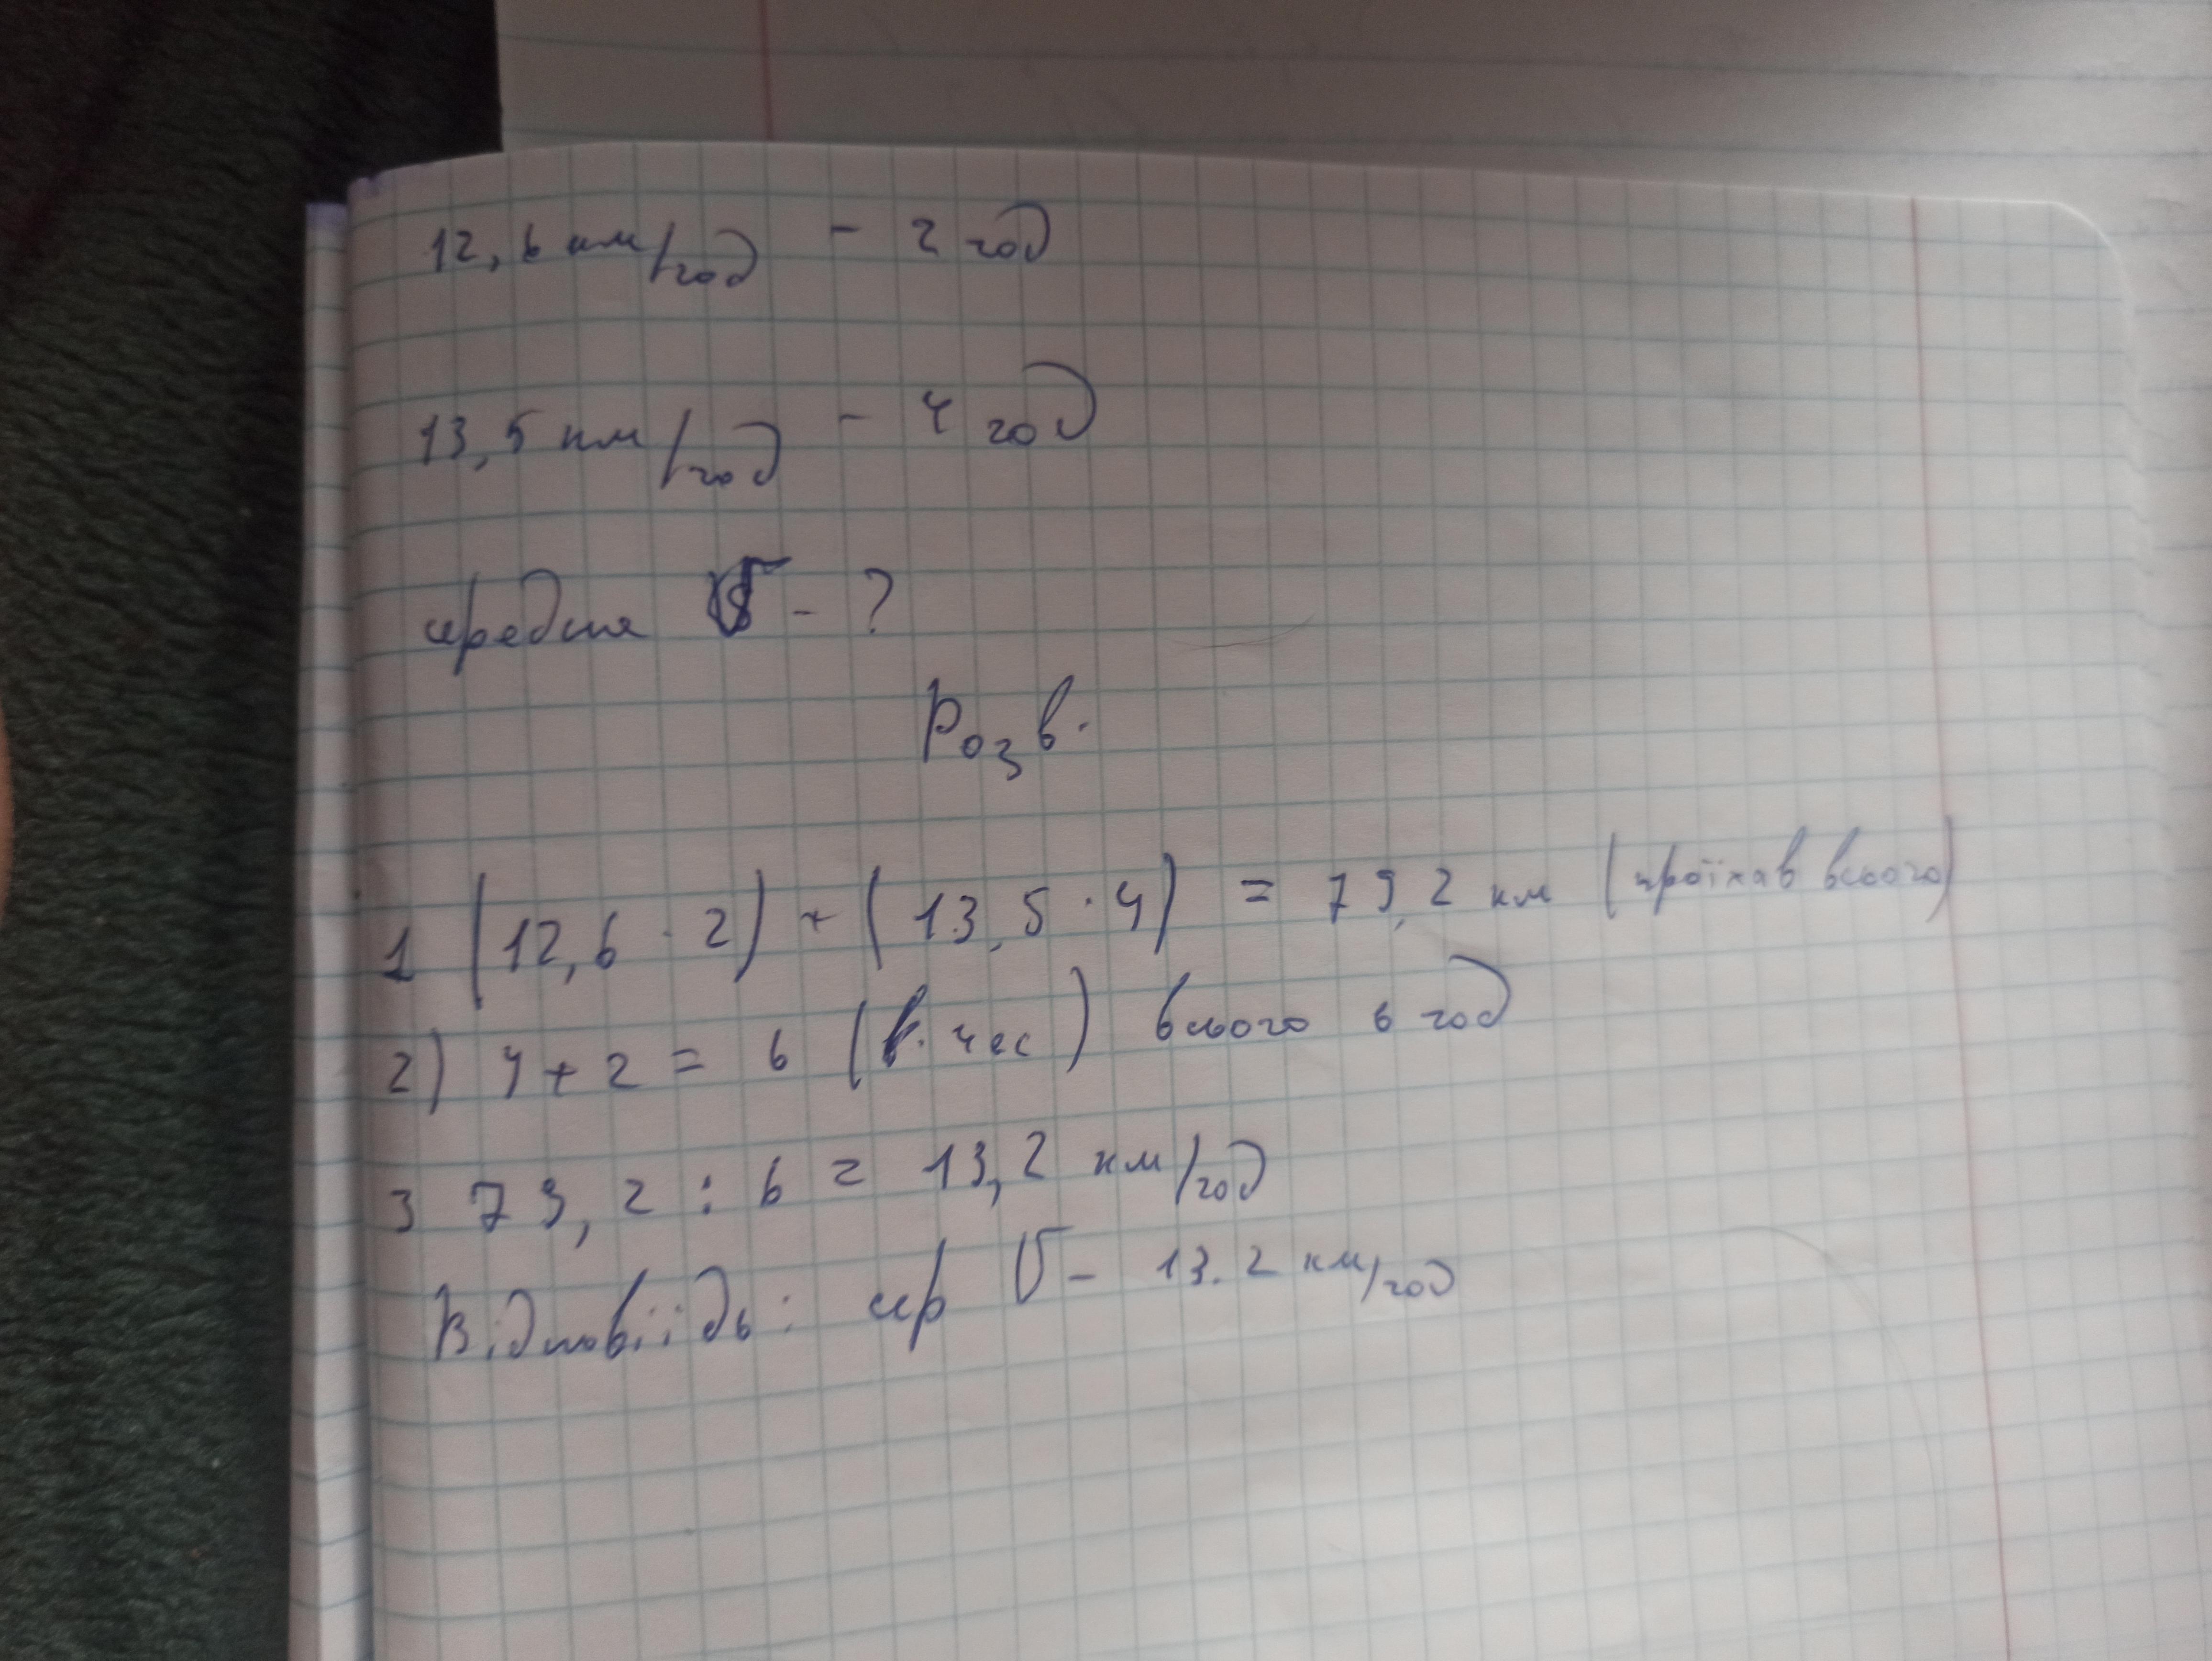 12,6 км/год - 2 год
13,5 км/год - 4 год
середня V - ?
Розв.
1 (12,6 · 2) + (13,5 · 4) = 79,2 км (проїхав всього)
2) 4 + 2 = 6 (в. чес) всього 6 год
3 79,2 : 6 = 13,2 км/год
Відповіідь: сер V - 13.2 км/год